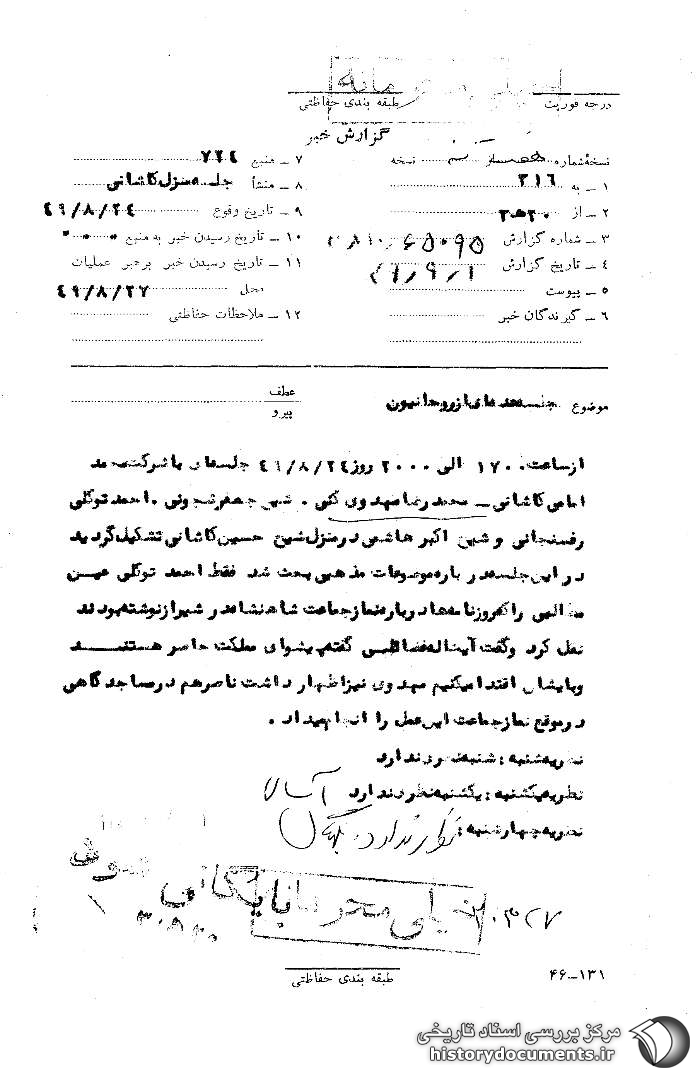 خیلی محرمانه
درجه فوریت
طبقه بندی حفاظتی
گزارش خبر
نسخهٔ شماره نسخه
۱ ــ به ۳۱۶
۲ ــ از ۲۰ه۳
۳ ــ شماره گزارش
۴ ــ تاریخ گزارش ۴۹/۹/۱
۵ ــ پیوست
۶ ــ گیرندگان خبر
۷ ــ منبع ۷۲۴
۸ ــ منشأ جلسه منزل کاشانی
۹ ــ تاریخ وقوع ۴۹/۸/۲۴
۱۰ ــ تاریخ رسیدن خبر به منبع
۱۱ ــ تاریخ رسیدن خبر به رهبر عملیات
محل ۴۹/۸/۲۷
۱۲ ــ ملاحظات حفاظتی
موضوع جلسه عده‌ای از روحانیون
عطف
پیرو
از ساعت ۱۷۰۰ الی ۲۰۰۰ روز ۴۹/۸/۲۴ جلسه‌ای با شرکت محمد
امامی کاشانی ــ محمد رضا مهدوی کنی ، شیخ جعفر شجونی ، احمد توکلی
رفسنجانی و شیخ اکبر هاشمی در منزل شیخ حسین کاشانی تشکیل گردید
در این جلسه در باره موضوعات مذهبی بحث شد فقط احمد توکلی عین
مطالبی را که روزنامه‌ها درباره نماز جماعت شاهنشاه در شیراز نوشته بودند
نقل کرد وگفت آیت‌اله گفته پیشوای مملکت حاضر هستند
و بایشان اقتدا میکنیم مهدوی نیز اظهار داشت ناصر هم در مساجد گاهی
در موقع نماز جماعت این عمل را انجام میداد .
نظریه شنبه : شنبه نظر ندارد
نظریه یکشنبه : یکشنبه نظر ندارد
نظریه چهارشنبه : نظر ندارد .
بایگانی شود
خیلی محرمانه
طبقه بندی حفاظتی
۴۶-۱۳۱
مرکز بررسی اسناد تاریخی
historydocuments.ir